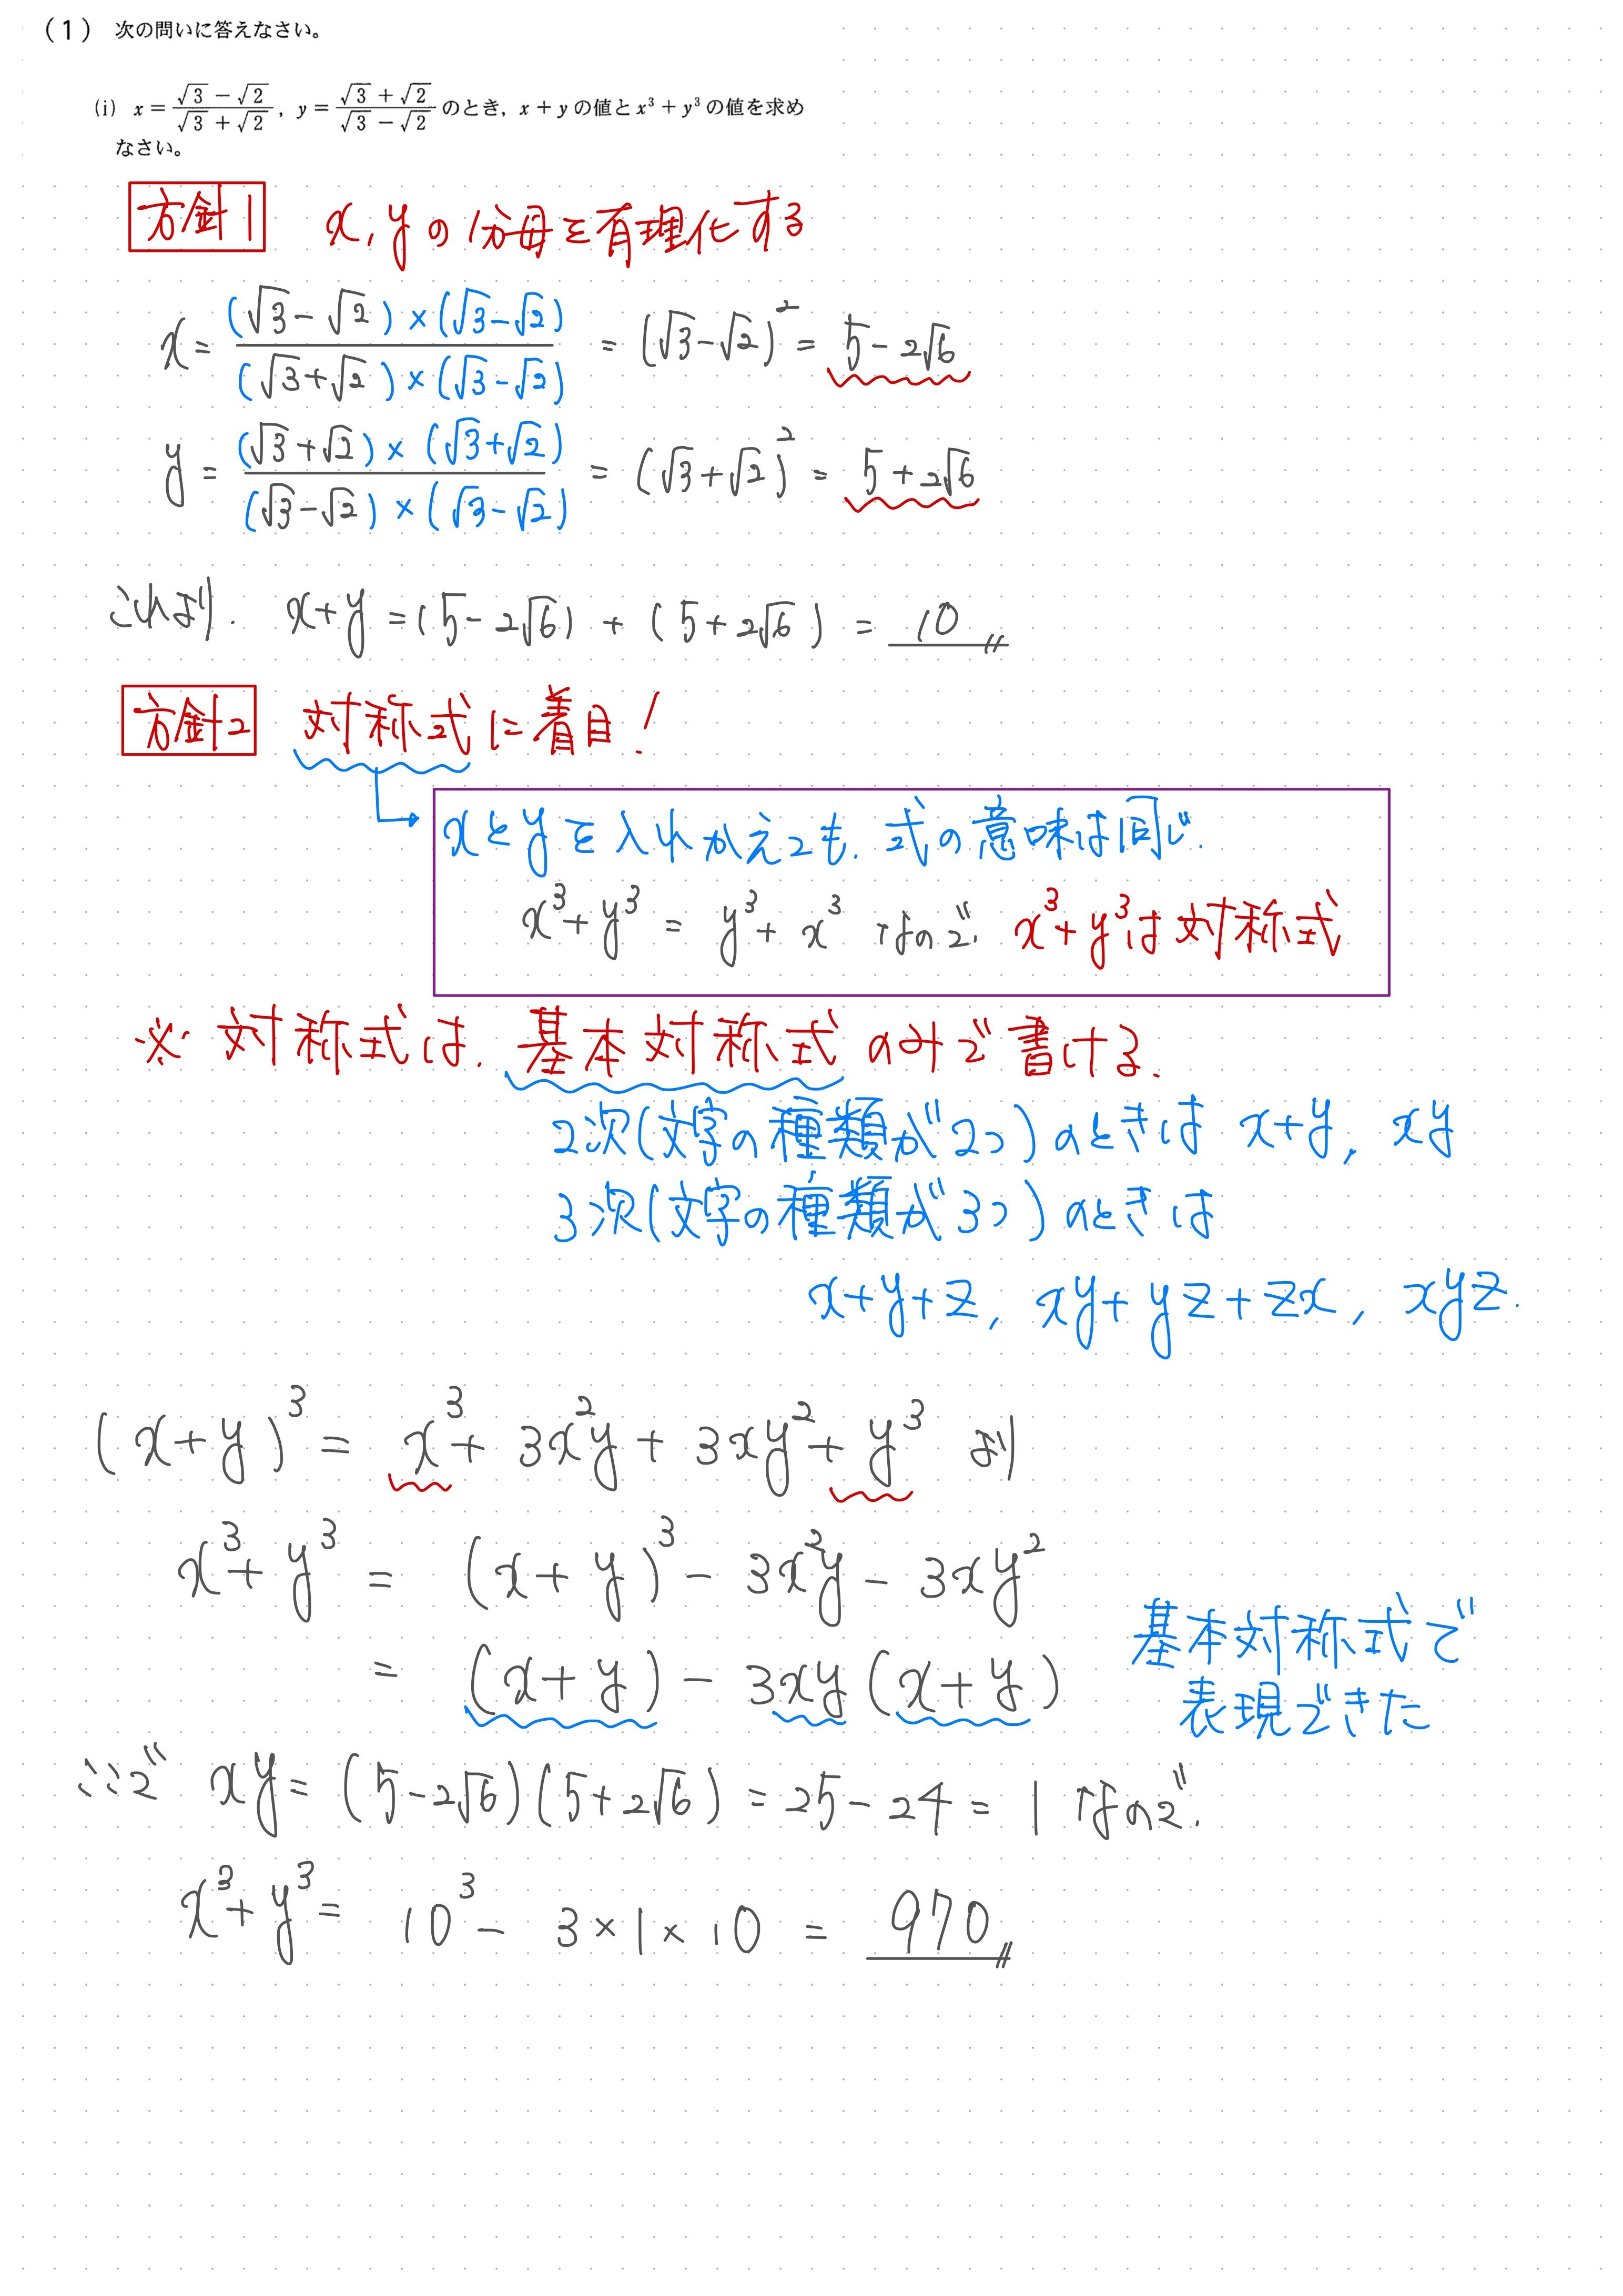 (1) 次の問いに答えなさい。
(i) x = (√3 − √2)/(√3 + √2), y = (√3 + √2)/(√3 − √2) のとき, x + y の値と x³ + y³ の値を求め
なさい。
方針1 x, yの分母を有理化する
x = (√3−√2)×(√3−√2)/(√3+√2)×(√3−√2) = (√3−√2)² = 5−2√6
y = (√3+√2)×(√3+√2)/(√3−√2)×(√3−√2) = (√3+√2)² = 5+2√6
これより. x+y = (5−2√6) + (5+2√6) = 10
方針2 対称式に着目!
xとyを入れかえても. 式の意味は同じ.
x³+y³ = y³+x³ なので. x³+y³は対称式
※ 対称式は. 基本対称式のみで書ける.
2次(文字の種類が2つ)のときは x+y, xy
3次(文字の種類が3つ)のときは
x+y+z, xy+yz+zx, xyz.
(x+y)³ = x³+3x²y+3xy²+y³ より
x³+y³ = (x+y)³−3x²y−3xy²
= (x+y)−3xy(x+y)
基本対称式で
表現できた
ここで xy = (5−2√6)(5+2√6) = 25−24 = 1 なので.
x³+y³ = 10³ − 3×1×10 = 970